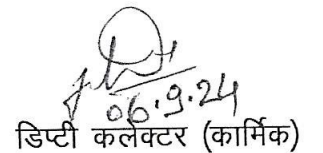 06.9.24
डिप्टी कलेक्टर (कार्मिक)